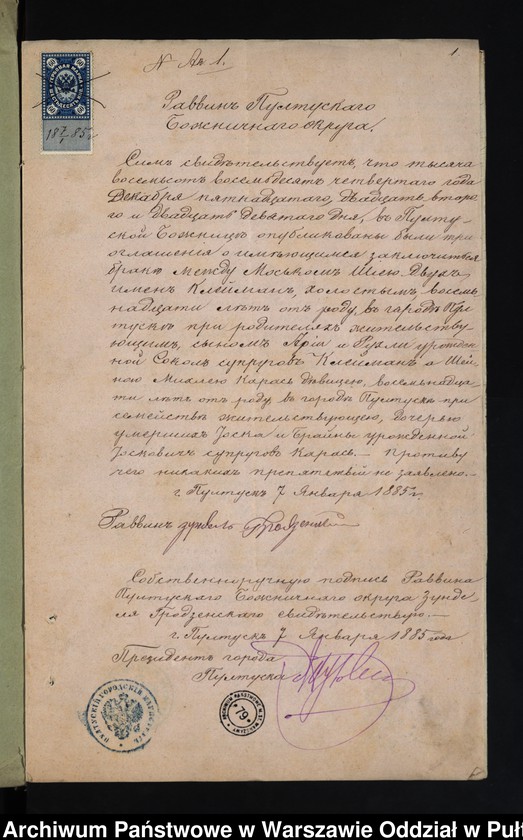 N Ал 1.
1.
Раввинъ Пултускаго
Божничнаго округа.
Симъ свидѣтельствуетъ, что тысяча
восемьсотъ восемьдесятъ четвертаго года
Декабря пятнадцатаго, двадцать второ-
го и двадцать девятаго дня, въ Пулту-
ской Божницѣ опубликованы были три
оглашенія о имѣющимся заключиться
бракѣ между Моськомъ Шлею двухъ
именъ Клейманъ, холостымъ, восем-
надцати лѣтъ отъ роду, въ городѣ Пул-
тускѣ при родителяхъ жительству-
ющимъ, сыномъ Арія и Рухли урожден-
ной Соколъ супруговъ Клейманъ а Шей-
ною Михлею Карась дѣвицею, восемьнадца-
ти лѣтъ отъ роду въ городѣ Пултускѣ при
семействѣ жительствующею, дочерью
умершихъ Іоска и Брайны урожденной
Іосковичъ супруговъ Карась. — Противу
чего никакихъ препятствій не заявлено. —
г. Пултускъ 7 Января 1885 г.
Раввинъ
Собственноручную подпись Раввина
Пултускаго Божничнаго округа Зунде-
ля Гродзенскаго свидѣтельствую. —
г. Пултускъ 7 Января 1885 года
Президентъ города
Пултуска
187/I 85
79
Archiwum Państwowe w Warszawie Oddział w Puł